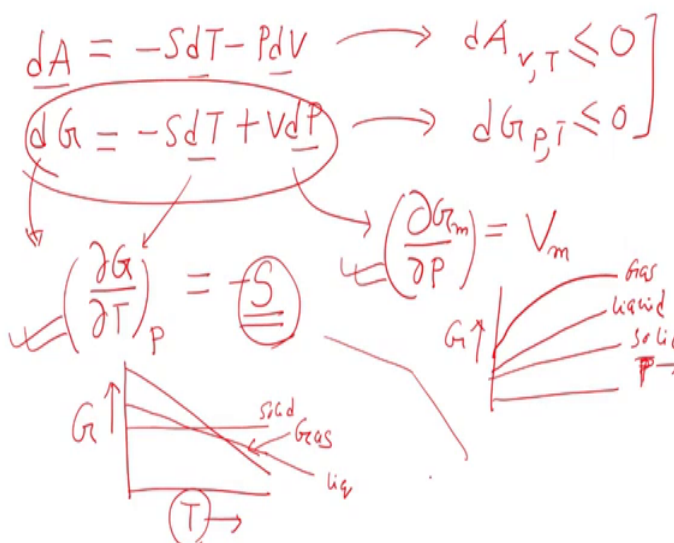 dA = -SdT - PdV → dA_{V,T} ≤ 0
dG = -SdT + VdP → dG_{P,T} ≤ 0
(∂G/∂T)_P = -S
(∂G_m/∂P) = V_m
G↑
Gas
Liquid
Solid
P →
G↑
Solid
Gas
Liq
T →